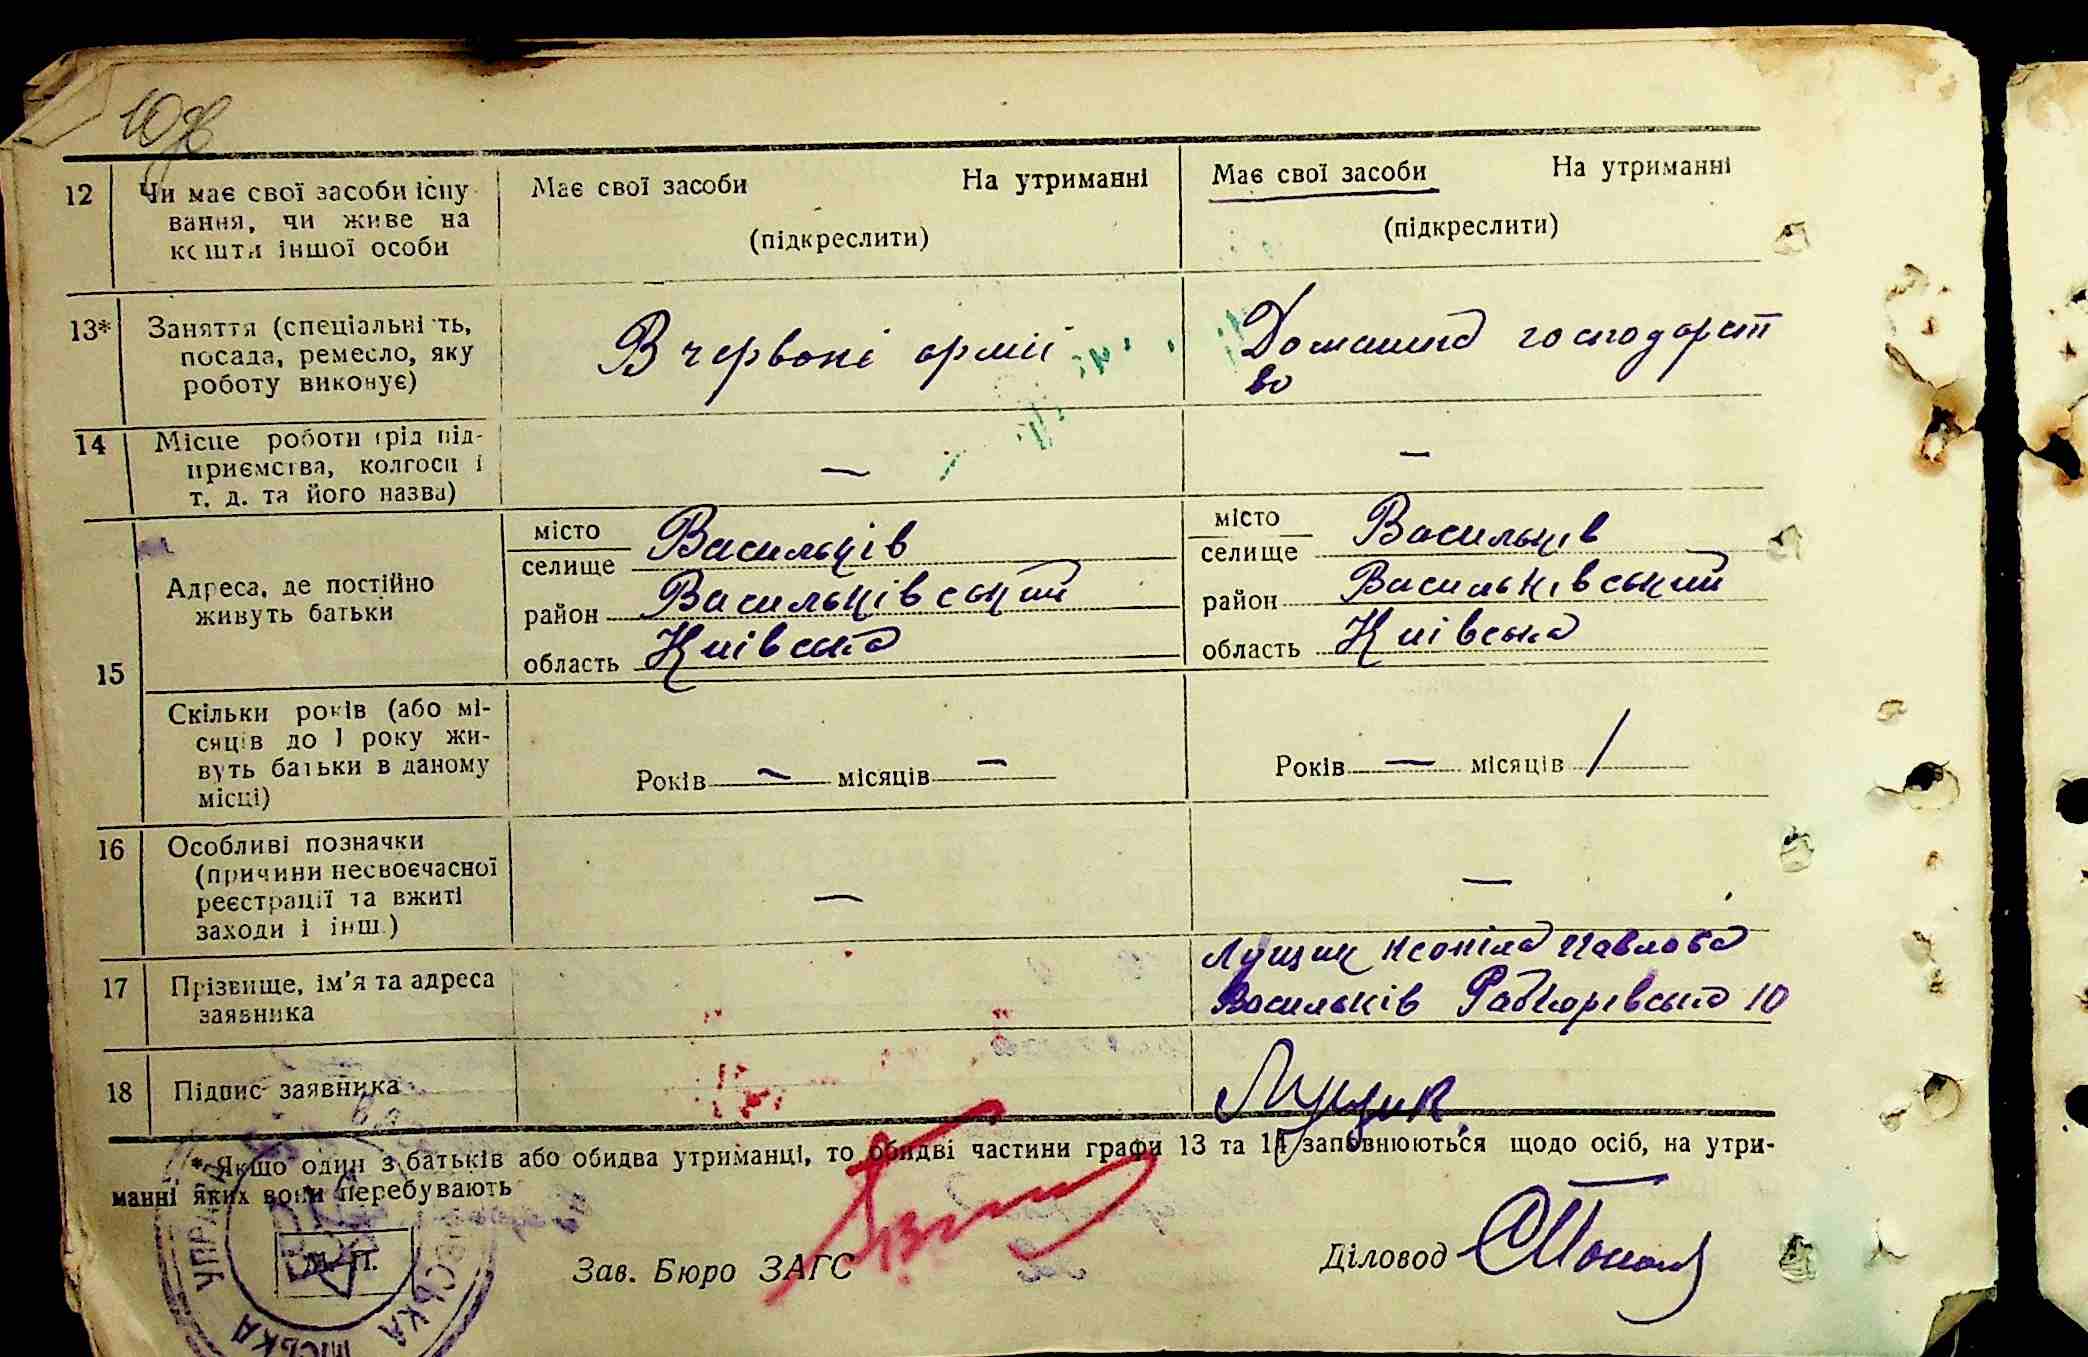 12 Чи має свої засоби існу- Має свої засоби На утриманні Має свої засоби На утриманні
вання, чи живе на (підкреслити) (підкреслити)
кошти іншої особи
13* Заняття (спеціальність, В червоні армії Домашнє господарст
посада, ремесло, яку во
роботу виконує)
14 Місце роботи (рід під- — —
приємства, колгосп і
т. д. та його назва)
15 Адреса, де постійно місто Васильків місто Васильків
живуть батьки селище селище
район Васильківський район Васильківський
область Київська область Київська
Скільки років (або мі-
сяців до 1 року жи-
вуть батьки в даному Років — місяців — Років — місяців /
місці)
16 Особливі позначки
(причини несвоєчасної — —
реєстрації та вжиті
заходи і інш.)
17 Прізвище, ім'я та адреса Лущик Неоніла Павлова
заявника Васильків Рабкорівська 10
18 Підпис заявника Лущик
* Якщо один з батьків або обидва утриманці, то обидві частини графи 13 та 14 заповнюються щодо осіб, на утри-
манні яких вони перебувають
М. П.
Зав. Бюро ЗАГС Діловод